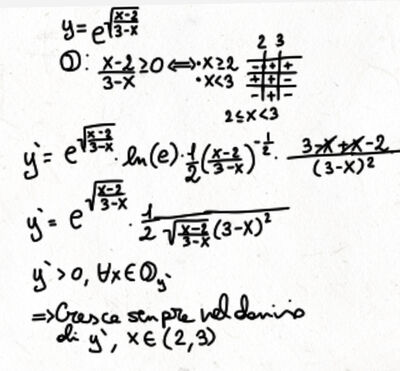 y = e^√((x-2)/(3-x))
D: (x-2)/(3-x) ≥ 0 ⟺ • x ≥ 2
• x < 3
2 3
- + +
+ + -
- + -
2 ≤ x < 3
y' = e^√((x-2)/(3-x)) · ln(e) · 1/2 ((x-2)/(3-x))^(-1/2) · (3-x+x-2)/(3-x)²
y' = e^√((x-2)/(3-x)) · 1/(2 √((x-2)/(3-x)) (3-x)²)
y' > 0, ∀x ∈ D y'
⇒ Cresce sempre nel dominio
di y', x ∈ (2,3)